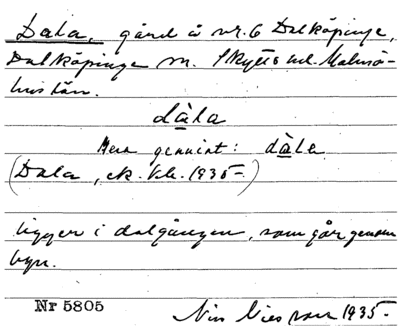 Dala, gård å nr. 6 Dalköpinge,
Dalköpinge sn. Skytts hd. Malmö-
hus län.
dàla
Mera genuint: dàle
(Dala, ek. kb. 1935-)
ligger i dalgången, som går genom
byn.
Nr 5805
1935-